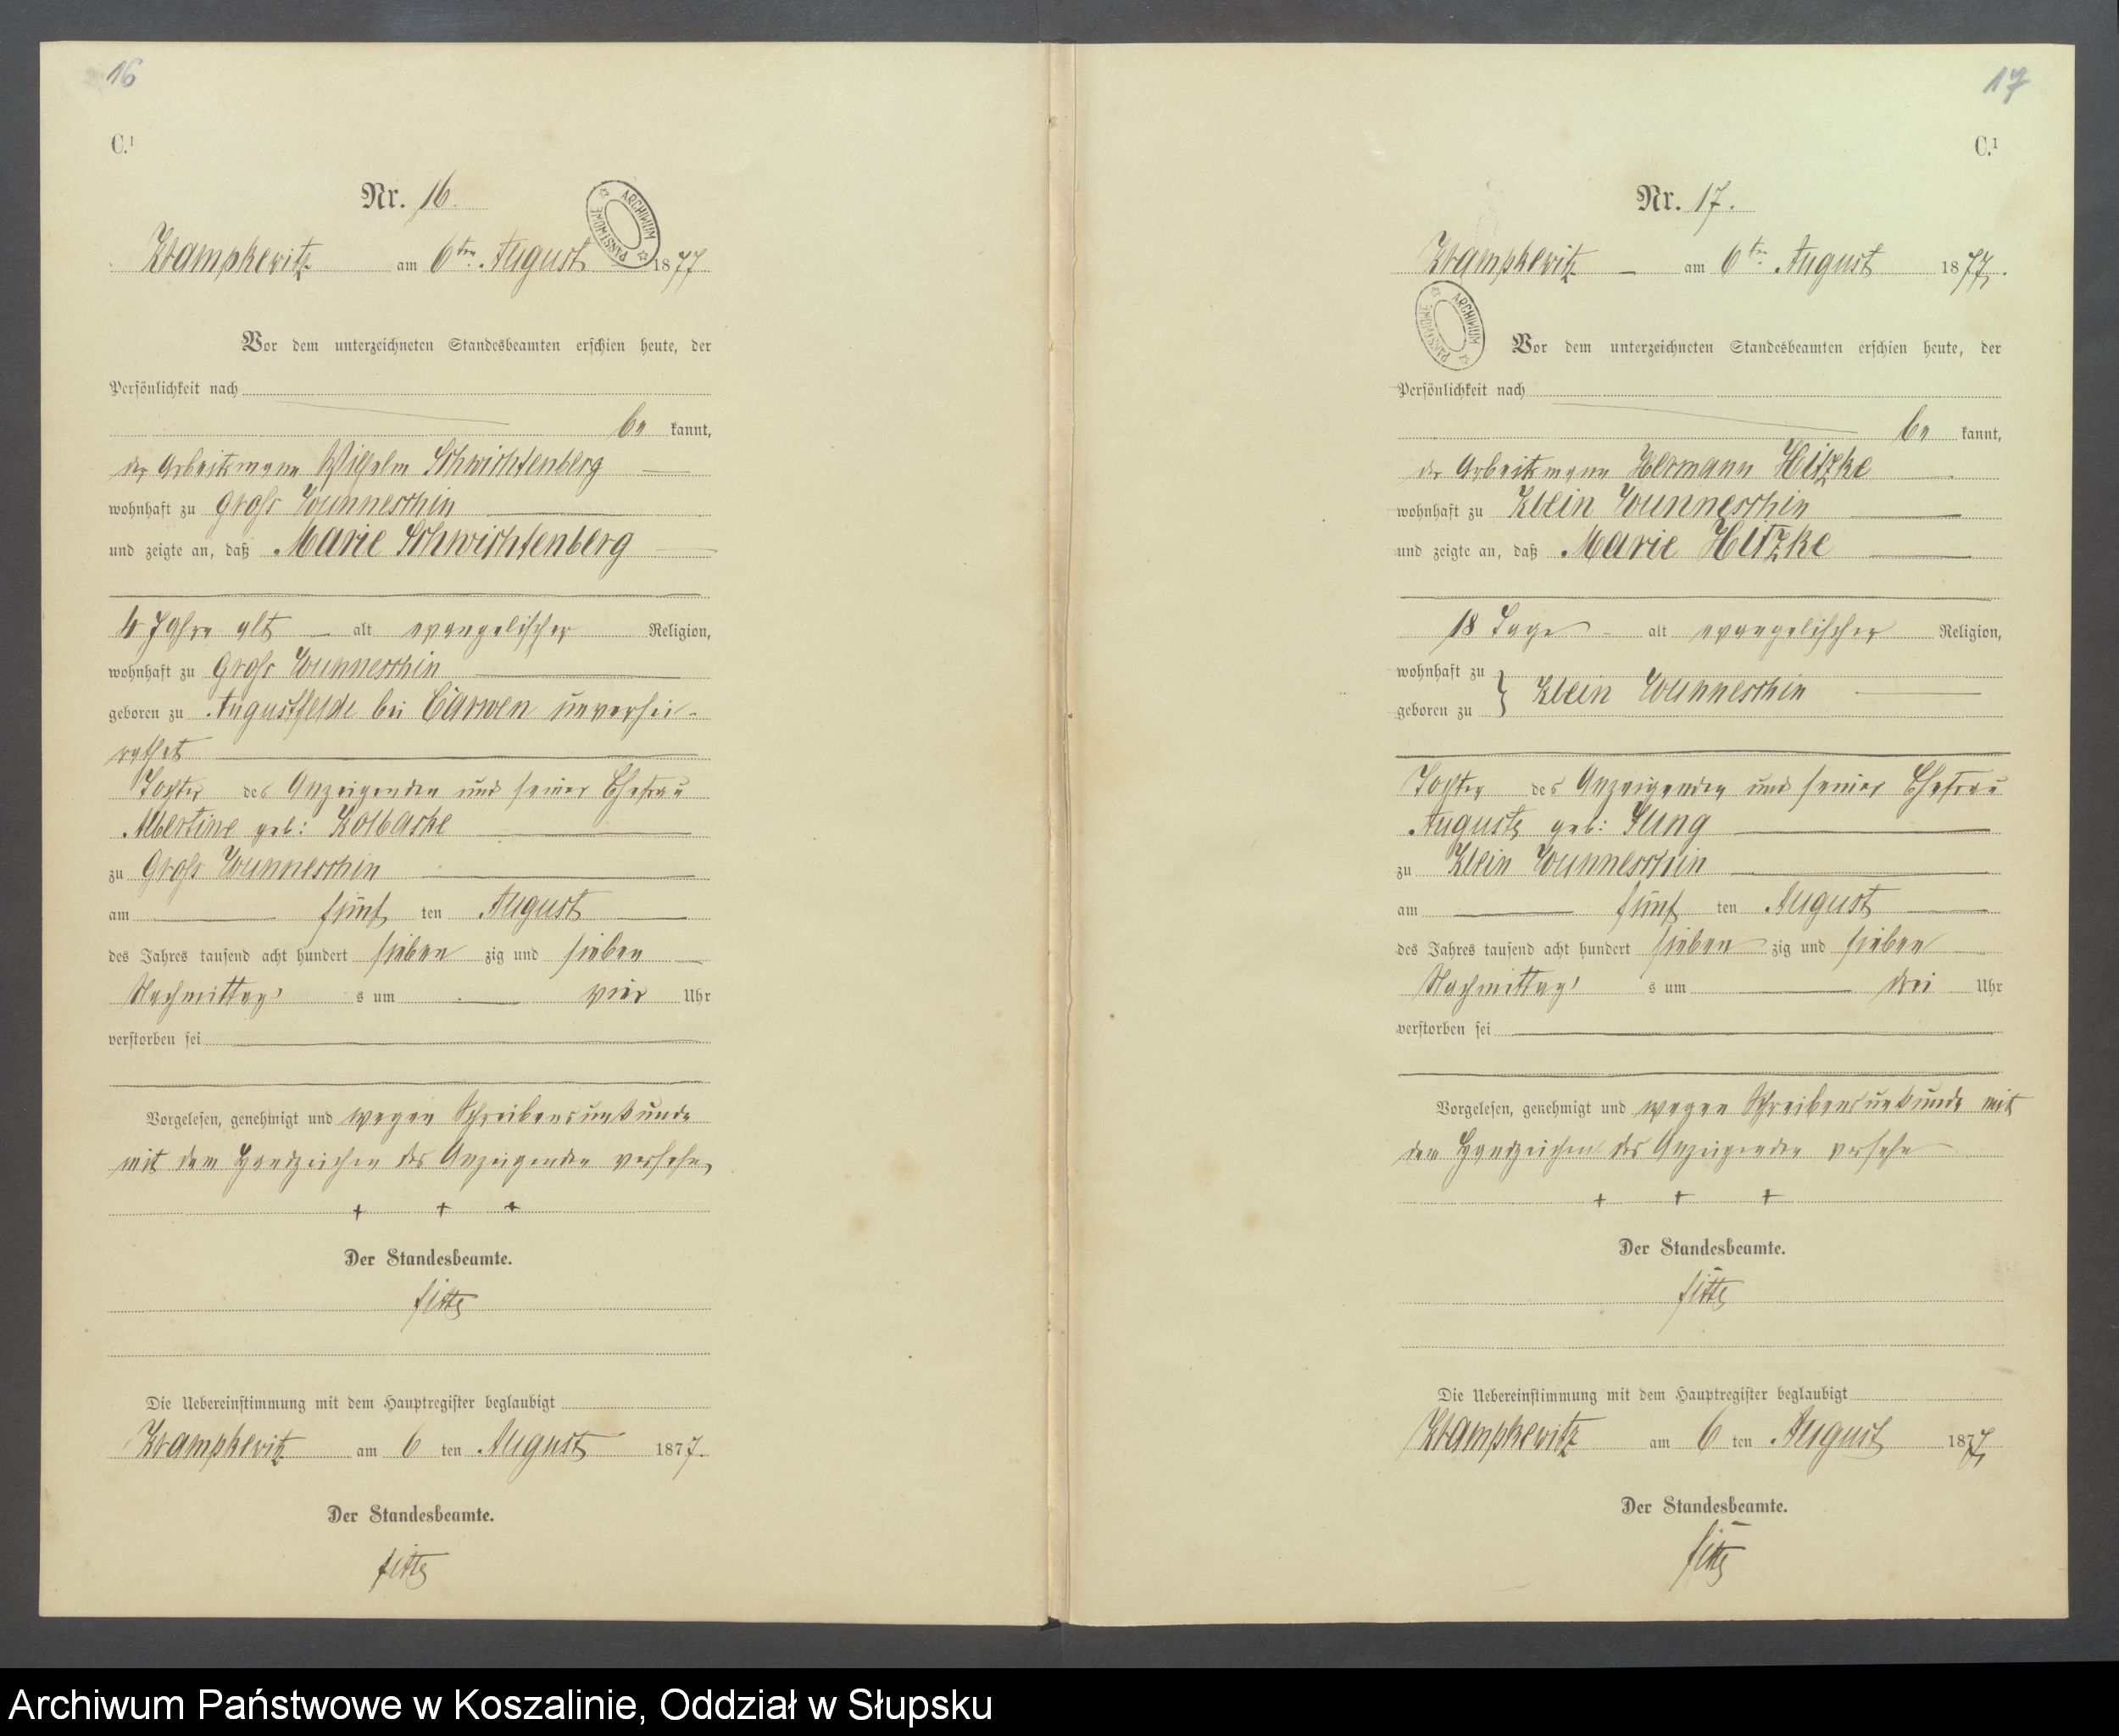 16
C.¹
Nr. 16.
ARCHIWUM PAŃSTWOWE
Krampkewitz am 6ten August 1877
Vor dem unterzeichneten Standesbeamten erschien heute, der
Persönlichkeit nach
be kannt,
der Arbeitsmann Wilhelm Schwichtenberg
wohnhaft zu Groß Wunneschin
und zeigte an, daß Marie Schwichtenberg
4 Jahre alt alt evangelischer Religion,
wohnhaft zu Groß Wunneschin
geboren zu Augustfelde bei Carwen unverhei-
rathet
Tochter des Anzeigenden und seiner Ehefrau
Albertine geb: Kolbaske
zu Groß Wunneschin
am fünf ten August
des Jahres tausend acht hundert sieben zig und sieben
Nachmittag s um vier Uhr
verstorben sei
Vorgelesen, genehmigt und wegen Schreibensunkunde
mit dem Handzeichen des Anzeigenden versehn,
+ + +
Der Standesbeamte.
Die Uebereinstimmung mit dem Hauptregister beglaubigt
Krampkewitz am 6 ten August 1877.
Der Standesbeamte.
17
C.¹
Nr. 17.
Krampkewitz am 6ten August 1877.
ARCHIWUM PAŃSTWOWE
Vor dem unterzeichneten Standesbeamten erschien heute, der
Persönlichkeit nach
be kannt,
der Arbeitsmann Hermann Hitzke
wohnhaft zu Klein Wunneschin
und zeigte an, daß Marie Hitzke
18 Tage alt evangelischer Religion,
wohnhaft zu
geboren zu } Klein Wunneschin
Tochter des Anzeigenden und seiner Ehefrau
Auguste geb: Jung
zu Klein Wunneschin
am fünf ten August
des Jahres tausend acht hundert sieben zig und sieben
Nachmittag s um drei Uhr
verstorben sei
Vorgelesen, genehmigt und wegen Schreibensunkunde mit
dem Handzeichen des Anzeigenden versehn
+ + +
Der Standesbeamte.
Die Uebereinstimmung mit dem Hauptregister beglaubigt
Krampkewitz am 6 ten August 1877
Der Standesbeamte.
Archiwum Państwowe w Koszalinie, Oddział w Słupsku